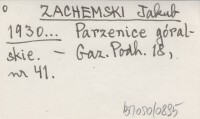 ZACHEMSKI Jakub
1930... Parzenice góral-
skie. – Gaz. Podh. 18,
nr 41.